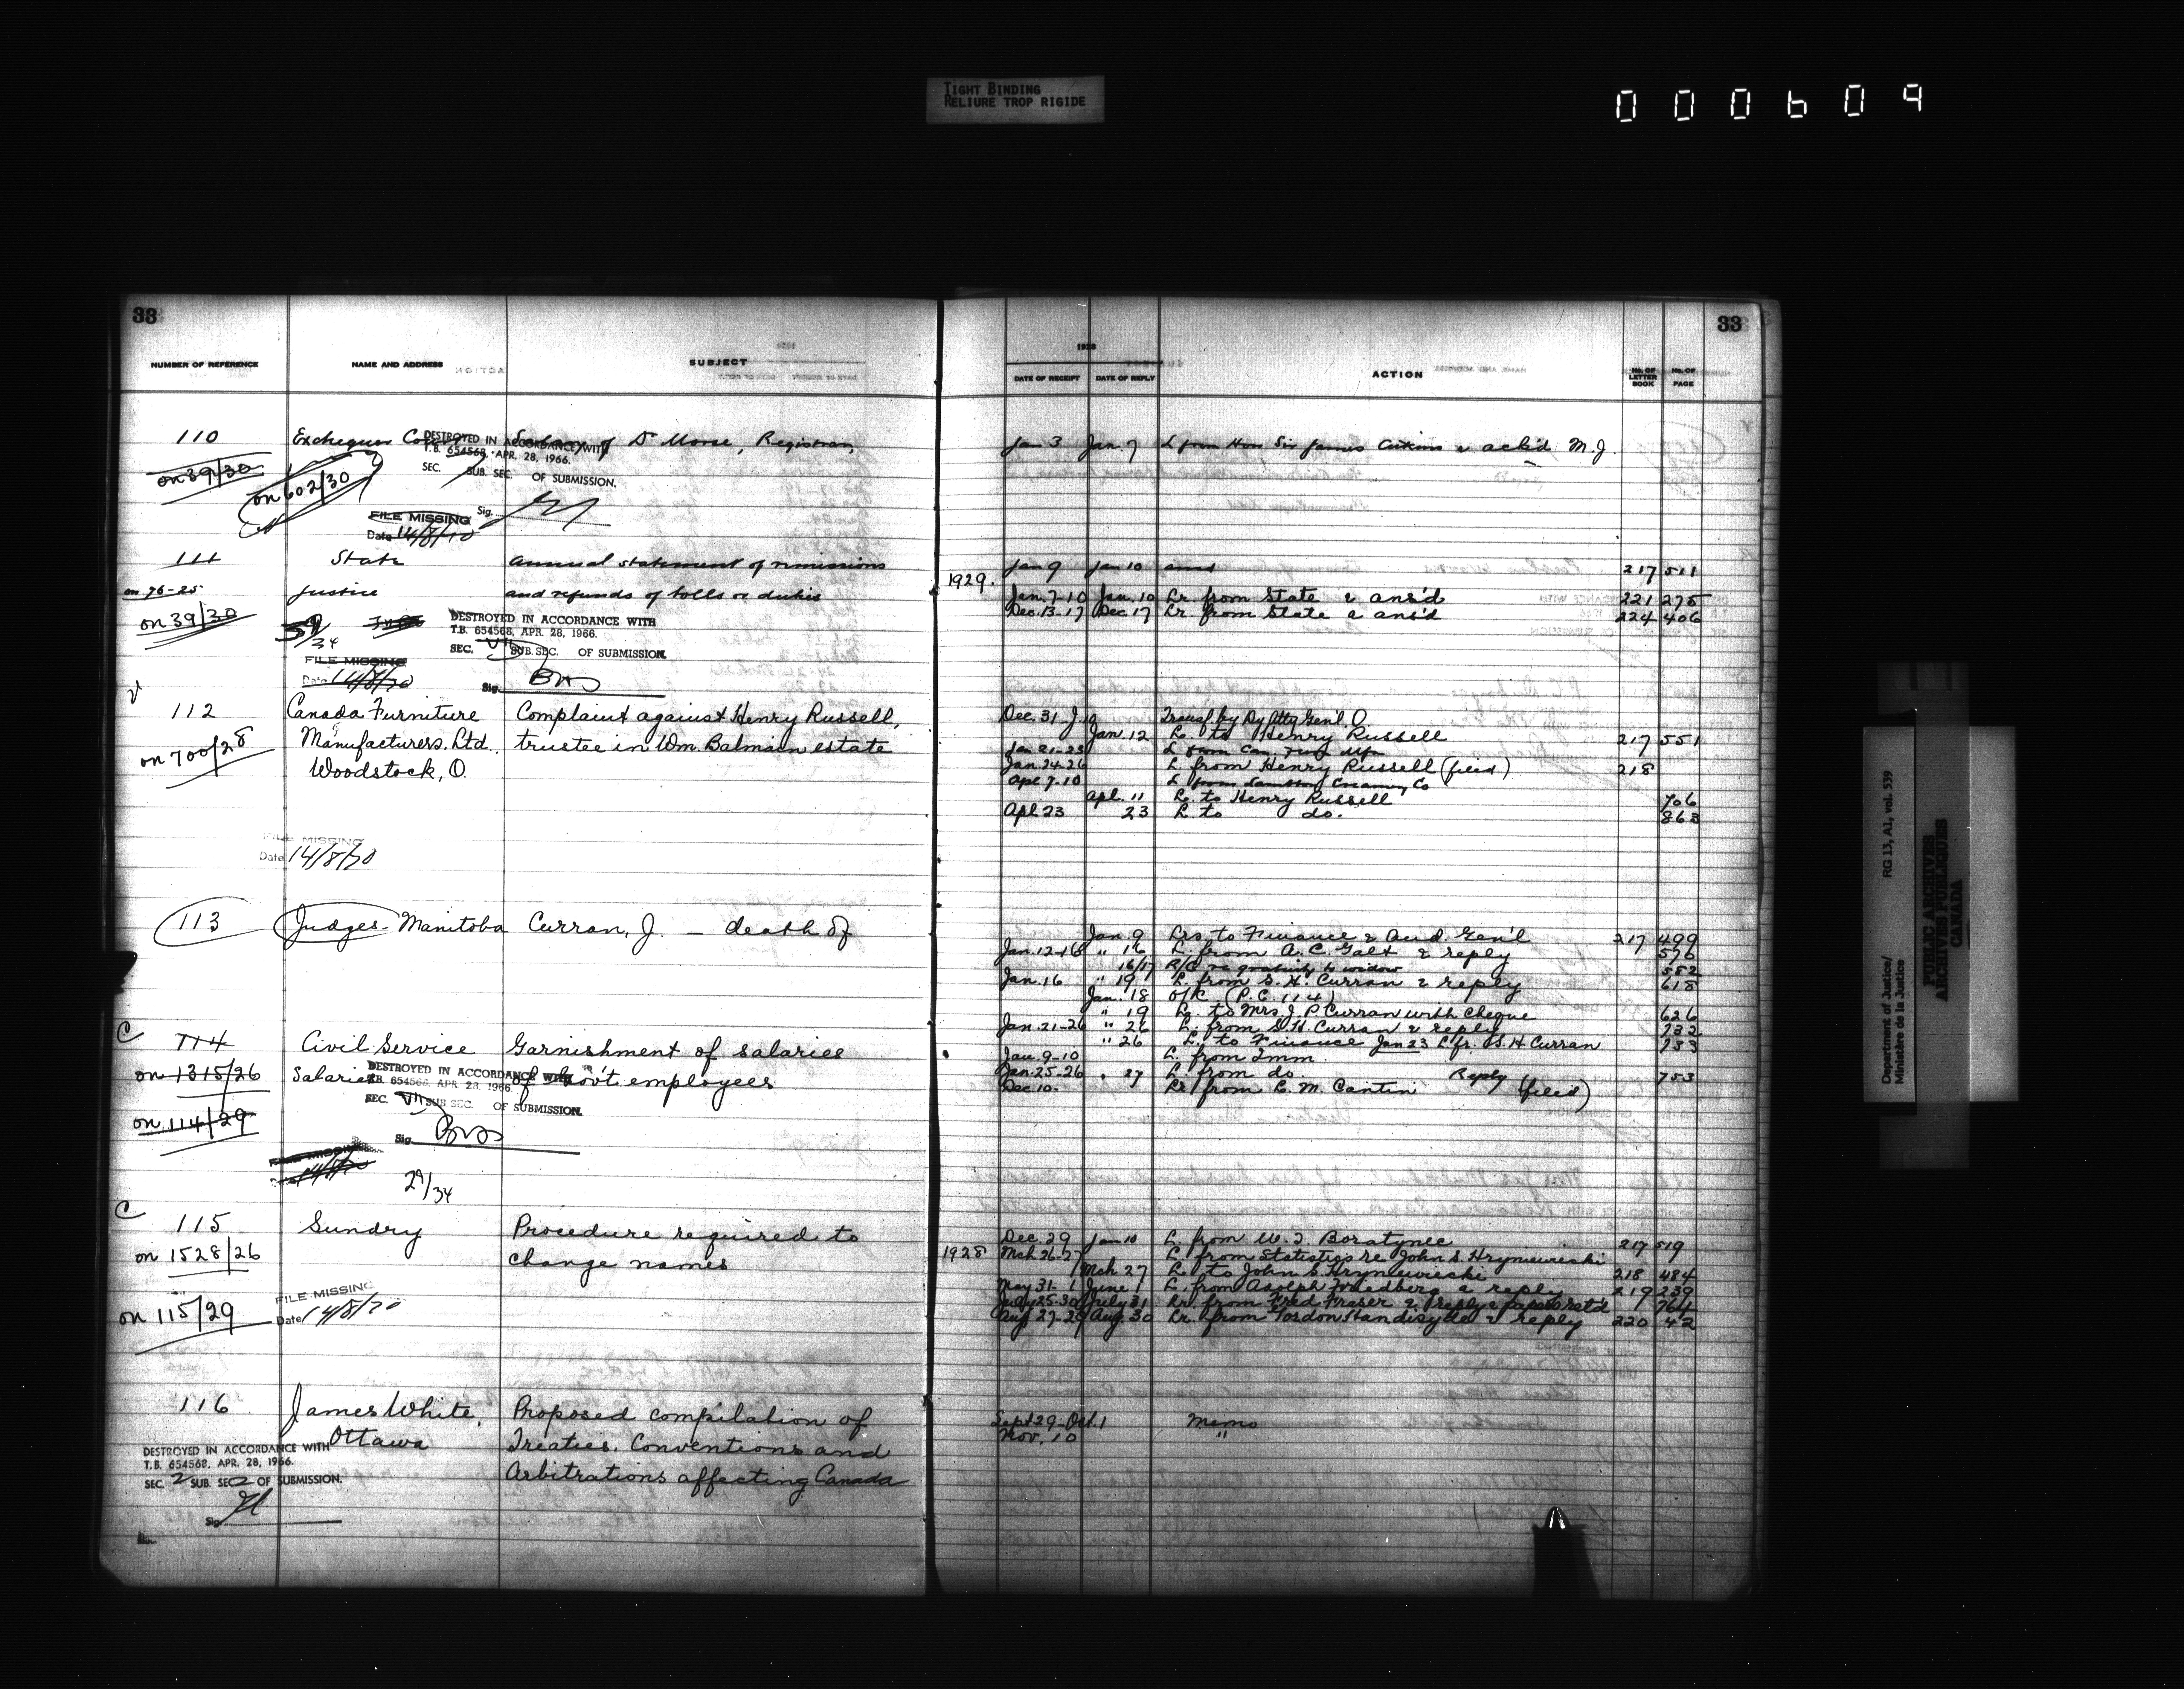 TIGHT BINDING
RELIURE TROP RIGIDE
000609
33
NUMBER OF REFERENCE NAME AND ADDRESS SUBJECT
110 Exchequer Court Salary of Dr Morse, Registrar,
DESTROYED IN ACCORDANCE WITH
T.B. 654568, APR. 28, 1966.
on 39/30
SEC. SUB. SEC. OF SUBMISSION.
on 602/30
Sig.
FILE MISSING
Date 14/8/70
111 State annual statement of remissions
on 76-25 Justice and refunds of tolls or duties
on 39/30
DESTROYED IN ACCORDANCE WITH
T.B. 654568, APR. 28, 1966.
34
SEC. VII SUB. SEC. OF SUBMISSION.
FILE MISSING
Date 14/8/70
Sig.
112 Canada Furniture Complaint against Henry Russell,
on 700/28 Manufacturers, Ltd., trustee in Wm. Balmain estate
Woodstock, O.
FILE MISSING
Date 14/8/70
113 Judges - Manitoba Curran, J. - death of
C
114 Civil Service Garnishment of salaries
on 1315/26 Salaries of Gov't employees
DESTROYED IN ACCORDANCE WITH
T.B. 654568, APR. 28, 1966.
SEC. VII SUB SEC. OF SUBMISSION.
on 114/29
Sig.
FILE MISSING
29/34
C
115 Sundry Procedure required to
on 1528/26 change names
FILE MISSING
on 115/29 Date 14/8/70
116 James White, Proposed compilation of
Ottawa Treaties, Conventions and
DESTROYED IN ACCORDANCE WITH
T.B. 654568, APR. 28, 1966.
Arbitrations affecting Canada
SEC. 2 SUB. SEC 2 OF SUBMISSION.
Sig.
33
1928
DATE OF RECEIPT DATE OF REPLY ACTION No. OF LETTER BOOK No. OF PAGE
Jan 3 Jan. 7 L from Hon Sir James Aikins & ack'd M.J.
Jan 9 Jan 10 217 511
1929. Jan. 7-10 Jan. 10 Lr from State & ans'd 221 275
Dec. 13-17 Dec 17 Lr. from State & ans'd 224 406
Dec. 31 Transf. by Dy Atty Gen'l. O.
Jan. 12 L. to Henry Russell 217 551
Jan 21-23 L from Can. Furn Mfrs
Jan. 24-26 L. from Henry Russell (filed) 218
Apl. 7-10 L from Creamery Co
Apl. 11 L. to Henry Russell 706
Apl. 23 23 L. to do. 863
Jan. 9 Lrs to Finance & Aud. Gen'l 217 499
Jan. 12-16 " 16 L. from A. C. Galt & reply 576
16/17 R/C re gratuity to widow 582
Jan. 16 " 19 L. from S. H. Curran & reply 618
Jan. 18 O/C (P.C. 114)
" 19 L. to Mrs J. P. Curran with cheque 626
Jan. 21-26 " 26 L. from S. H. Curran & reply 732
" 26 L. to Finance Jan 23 L. fr. S. H Curran 733
Jan. 9-10 L. from Imm.
Jan. 25-26 " 27 L. from do. Reply 753
Dec 10. Lr from L. M. Cantin (filed)
Dec. 29 Jan 10 L. from W. J. Boratynec 217 519
1928 Mch 26-27 L. from Statistics re John S. Hryniewiecki
Mch 27 L. to John S. Hryniewiecki 218 484
May 31-1 June 1 L. from Adolph Friedberg & reply 219 239
July 25-30 July 31 Lr. from Fred Fraser & reply & papers ret'd 764
Aug 27-29 Aug. 30 Lr. from Gordon Standisyde & reply 220 42
Sept 29-Oct. 1 Memo
Nov. 10 "
Department of Justice/
Ministère de la Justice
RG 13, A1, vol. 539
PUBLIC ARCHIVES
ARCHIVES PUBLIQUES
CANADA